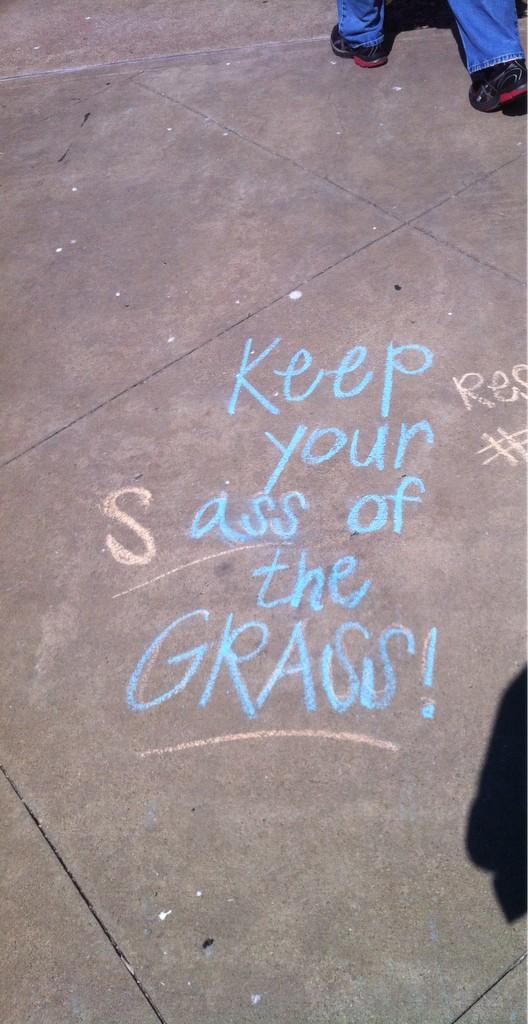 Keep
your
S ass of
the
GRASS!
Res
#